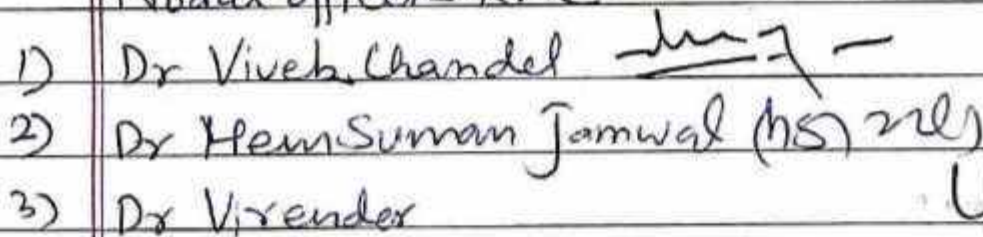 1) Dr Vivek Chandel
2) Dr Hem Suman Jamwal (hs)
3) Dr Virender